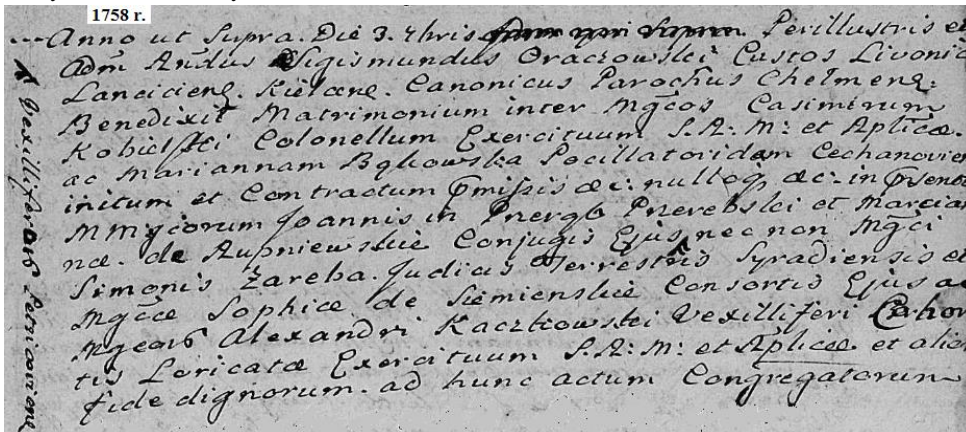 1758 r.
Anno ut Supra. Die 3. 7bris Perillustris et
Adm Rndus Sigismundus Oraczowski Custos Livonic
Lancicieng. Kielcene. Canonicus Parochus Chelmene:
Benedixit Matrimonium inter Mgcos Casimirum
Kobielski Colonellum Exercituum S. R: M: et Rplicæ.
ac Mariannam Bąkowska Pocillatoridam Cechanovien
initum et Contractum præmissis &c: nulloq &c: in præsent
MMgcorum Joannis in Przerąb Przerebski et Marcian
næ. de Rupniewskie Conjugis Ejus nec non Mgci
Simonis Zaręba. Judicis Terrestris Syradiensis et
Mgcæ Sophiæ de Siemienskie Consortis Ejus ac
Alexandri Kaczkowski Vexilliferi Cohor
tis Loricatæ Exercituum S. R: M: et Rplicæ. et alio
fide dignorum. ad hunc actum Congregatorum
Vexilliferors